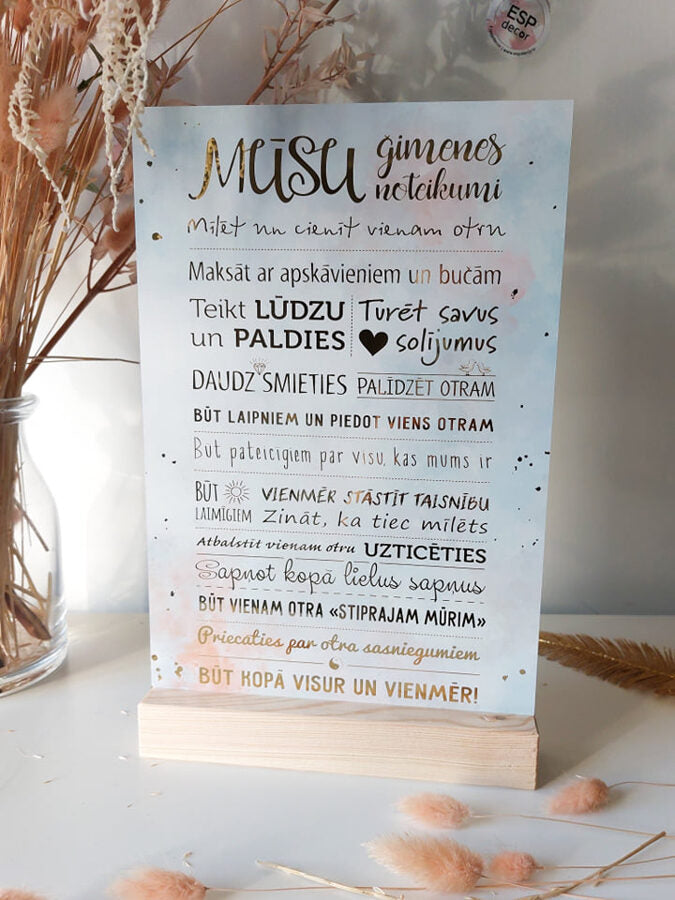 ESP
decor
Mūsu ģimenes
noteikumi
Mīlēt un cienīt vienam otru
Maksāt ar apskāvieniem un bučām
Teikt LŪDZU
un PALDIES
Turēt savus
solījumus
DAUDZ SMIETIES
PALĪDZĒT OTRAM
BŪT LAIPNIEM UN PIEDOT VIENS OTRAM
Būt pateicīgiem par visu, kas mums ir
BŪT
LAIMĪGIEM
VIENMĒR STĀSTĪT TAISNĪBU
Zināt, ka tiec mīlēts
Atbalstīt vienam otru UZTICĒTIES
Sapņot kopā lielus sapņus
BŪT VIENAM OTRA «STIPRAJAM MŪRIM»
Priecāties par otra sasniegumiem
BŪT KOPĀ VISUR UN VIENMĒR!